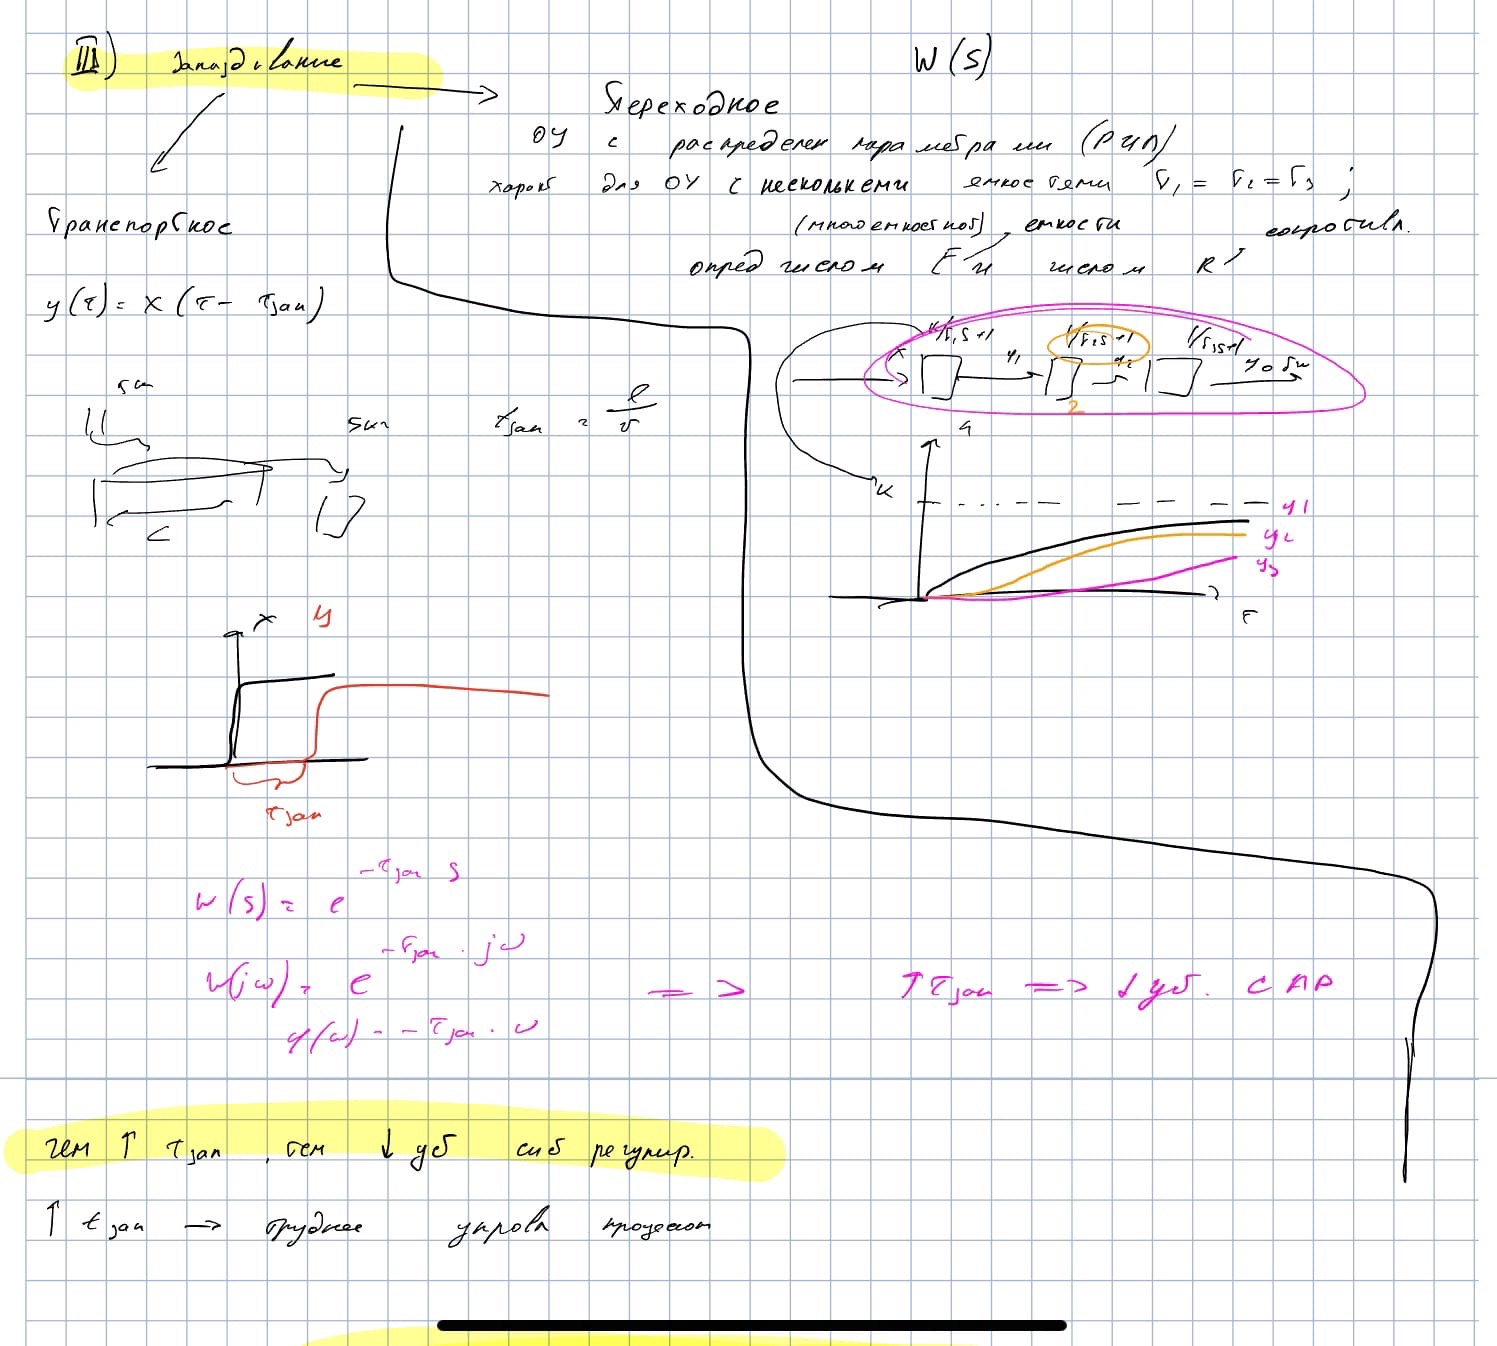 III) Запаздывание
W(s)
Переходное
ОУ с распределен параметрами (РЧП)
характ для ОУ с несколькеми емкостями τ₁ = τ₂ = τ₃ ;
(многоемкостной), емкости сопротивл.
опред числом E и числом R
Транспортное
y(τ) = x(τ - τзап)
5кг
5кг
tзап = l/v
L
K/τ₁s+1 1/τ₂s+1 1/τ₃s+1
x y₁ y₂ yоби
2
y
K
y1
y2
y3
τ
x y
τзап
W(s) = e^(-τзап s)
W(jω) = e^(-τзап · jω)
φ(ω) = -τзап · ω
=> ↑τзап => ↓ уст. САР
чем ↑ τзап, тем ↓ уст сист регулир.
↑ tзап → труднее управл процессом